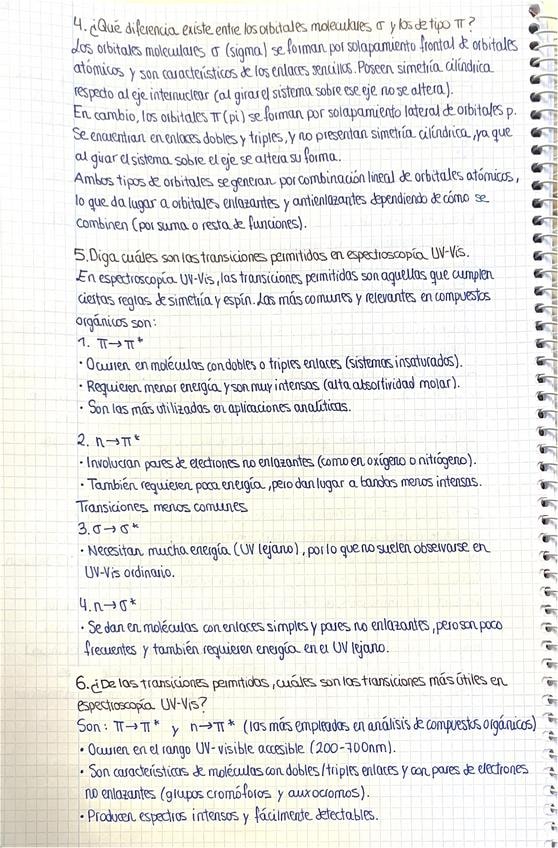 4. ¿Qué diferencia existe entre los orbitales moleculares σ y los de tipo π?
Los orbitales moleculares σ (sigma) se forman por solapamiento frontal de orbitales
atómicos y son característicos de los enlaces sencillos. Poseen simetría cilíndrica
respecto al eje internuclear (al girar el sistema sobre ese eje no se altera).
En cambio, los orbitales π (pi) se forman por solapamiento lateral de orbitales p.
Se encuentran en enlaces dobles y triples, y no presentan simetría cilíndrica, ya que
al girar el sistema sobre el eje se altera su forma.
Ambos tipos de orbitales se generan por combinación lineal de orbitales atómicos,
lo que da lugar a orbitales enlazantes y antienlazantes dependiendo de cómo se
combinen (por suma o resta de funciones).
5. Diga cuáles son las transiciones permitidas en espectroscopía UV-Vis.
En espectroscopía UV-Vis, las transiciones permitidas son aquellas que cumplen
ciertas reglas de simetría y espín. Las más comunes y relevantes en compuestos
orgánicos son:
1. π→π*
• Ocurren en moléculas con dobles o triples enlaces (sistemas insaturados).
• Requieren menor energía y son muy intensas (alta absortividad molar).
• Son las más utilizadas en aplicaciones analíticas.
2. n→π*
• Involucran pares de electrones no enlazantes (como en oxígeno o nitrógeno).
• También requieren poca energía, pero dan lugar a bandas menos intensas.
Transiciones menos comunes
3. σ→σ*
• Necesitan mucha energía (UV lejano), por lo que no suelen observarse en
UV-Vis ordinario.
4. n→σ*
• Se dan en moléculas con enlaces simples y pares no enlazantes, pero son poco
frecuentes y también requieren energía en el UV lejano.
6. ¿De las transiciones permitidas, cuáles son las transiciones más útiles en
espectroscopía UV-Vis?
Son: π→π* y n→π* (las más empleadas en análisis de compuestos orgánicos)
• Ocurren en el rango UV-visible accesible (200-700nm).
• Son características de moléculas con dobles/triples enlaces y con pares de electrones
no enlazantes (grupos cromóforos y auxocromos).
• Producen espectros intensos y fácilmente detectables.